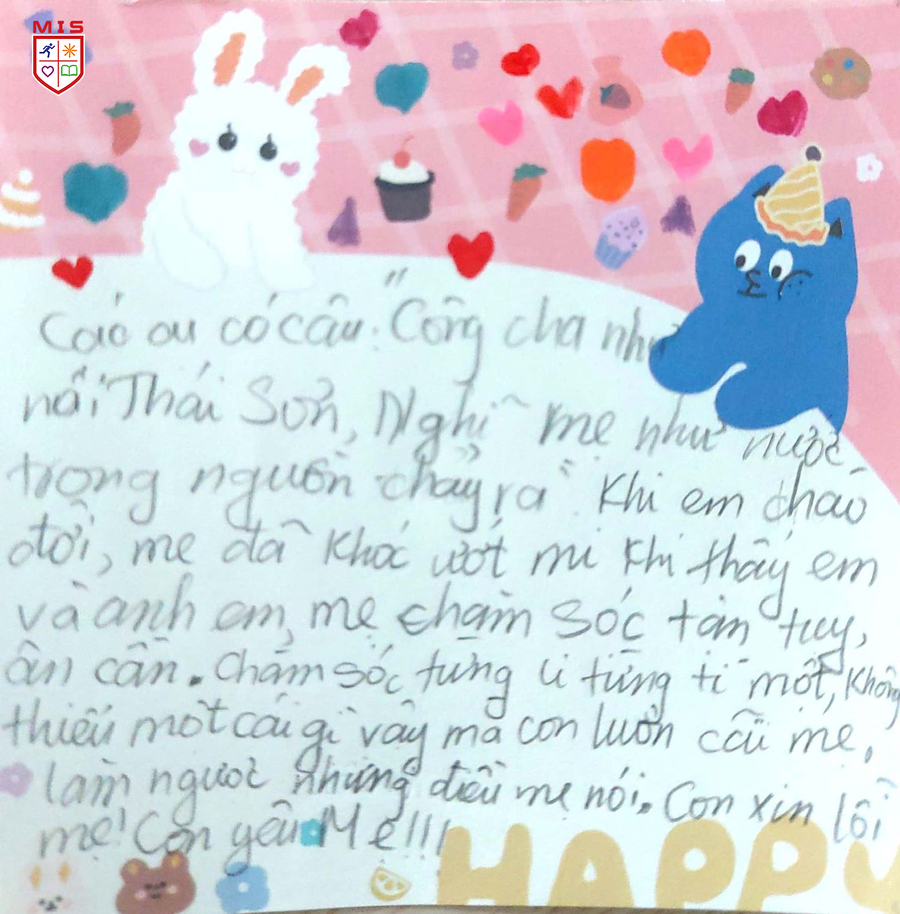 MIS
Các ou có câu: "Công cha như
núi Thái Sơn, Nghĩ mẹ như nước
trong nguồn chảy ra" Khi em chào
đời, mẹ đã khóc ướt mi khi thấy em
và anh em, mẹ chăm sóc tận tuy,
ân cần. Chăm sóc từng li từng tí một, không
thiếu một cái gì vậy mà con luôn cãi mẹ,
làm ngược những điều mẹ nói. Con xin lỗi
mẹ! Con yêu Mẹ!!!
HAPPY